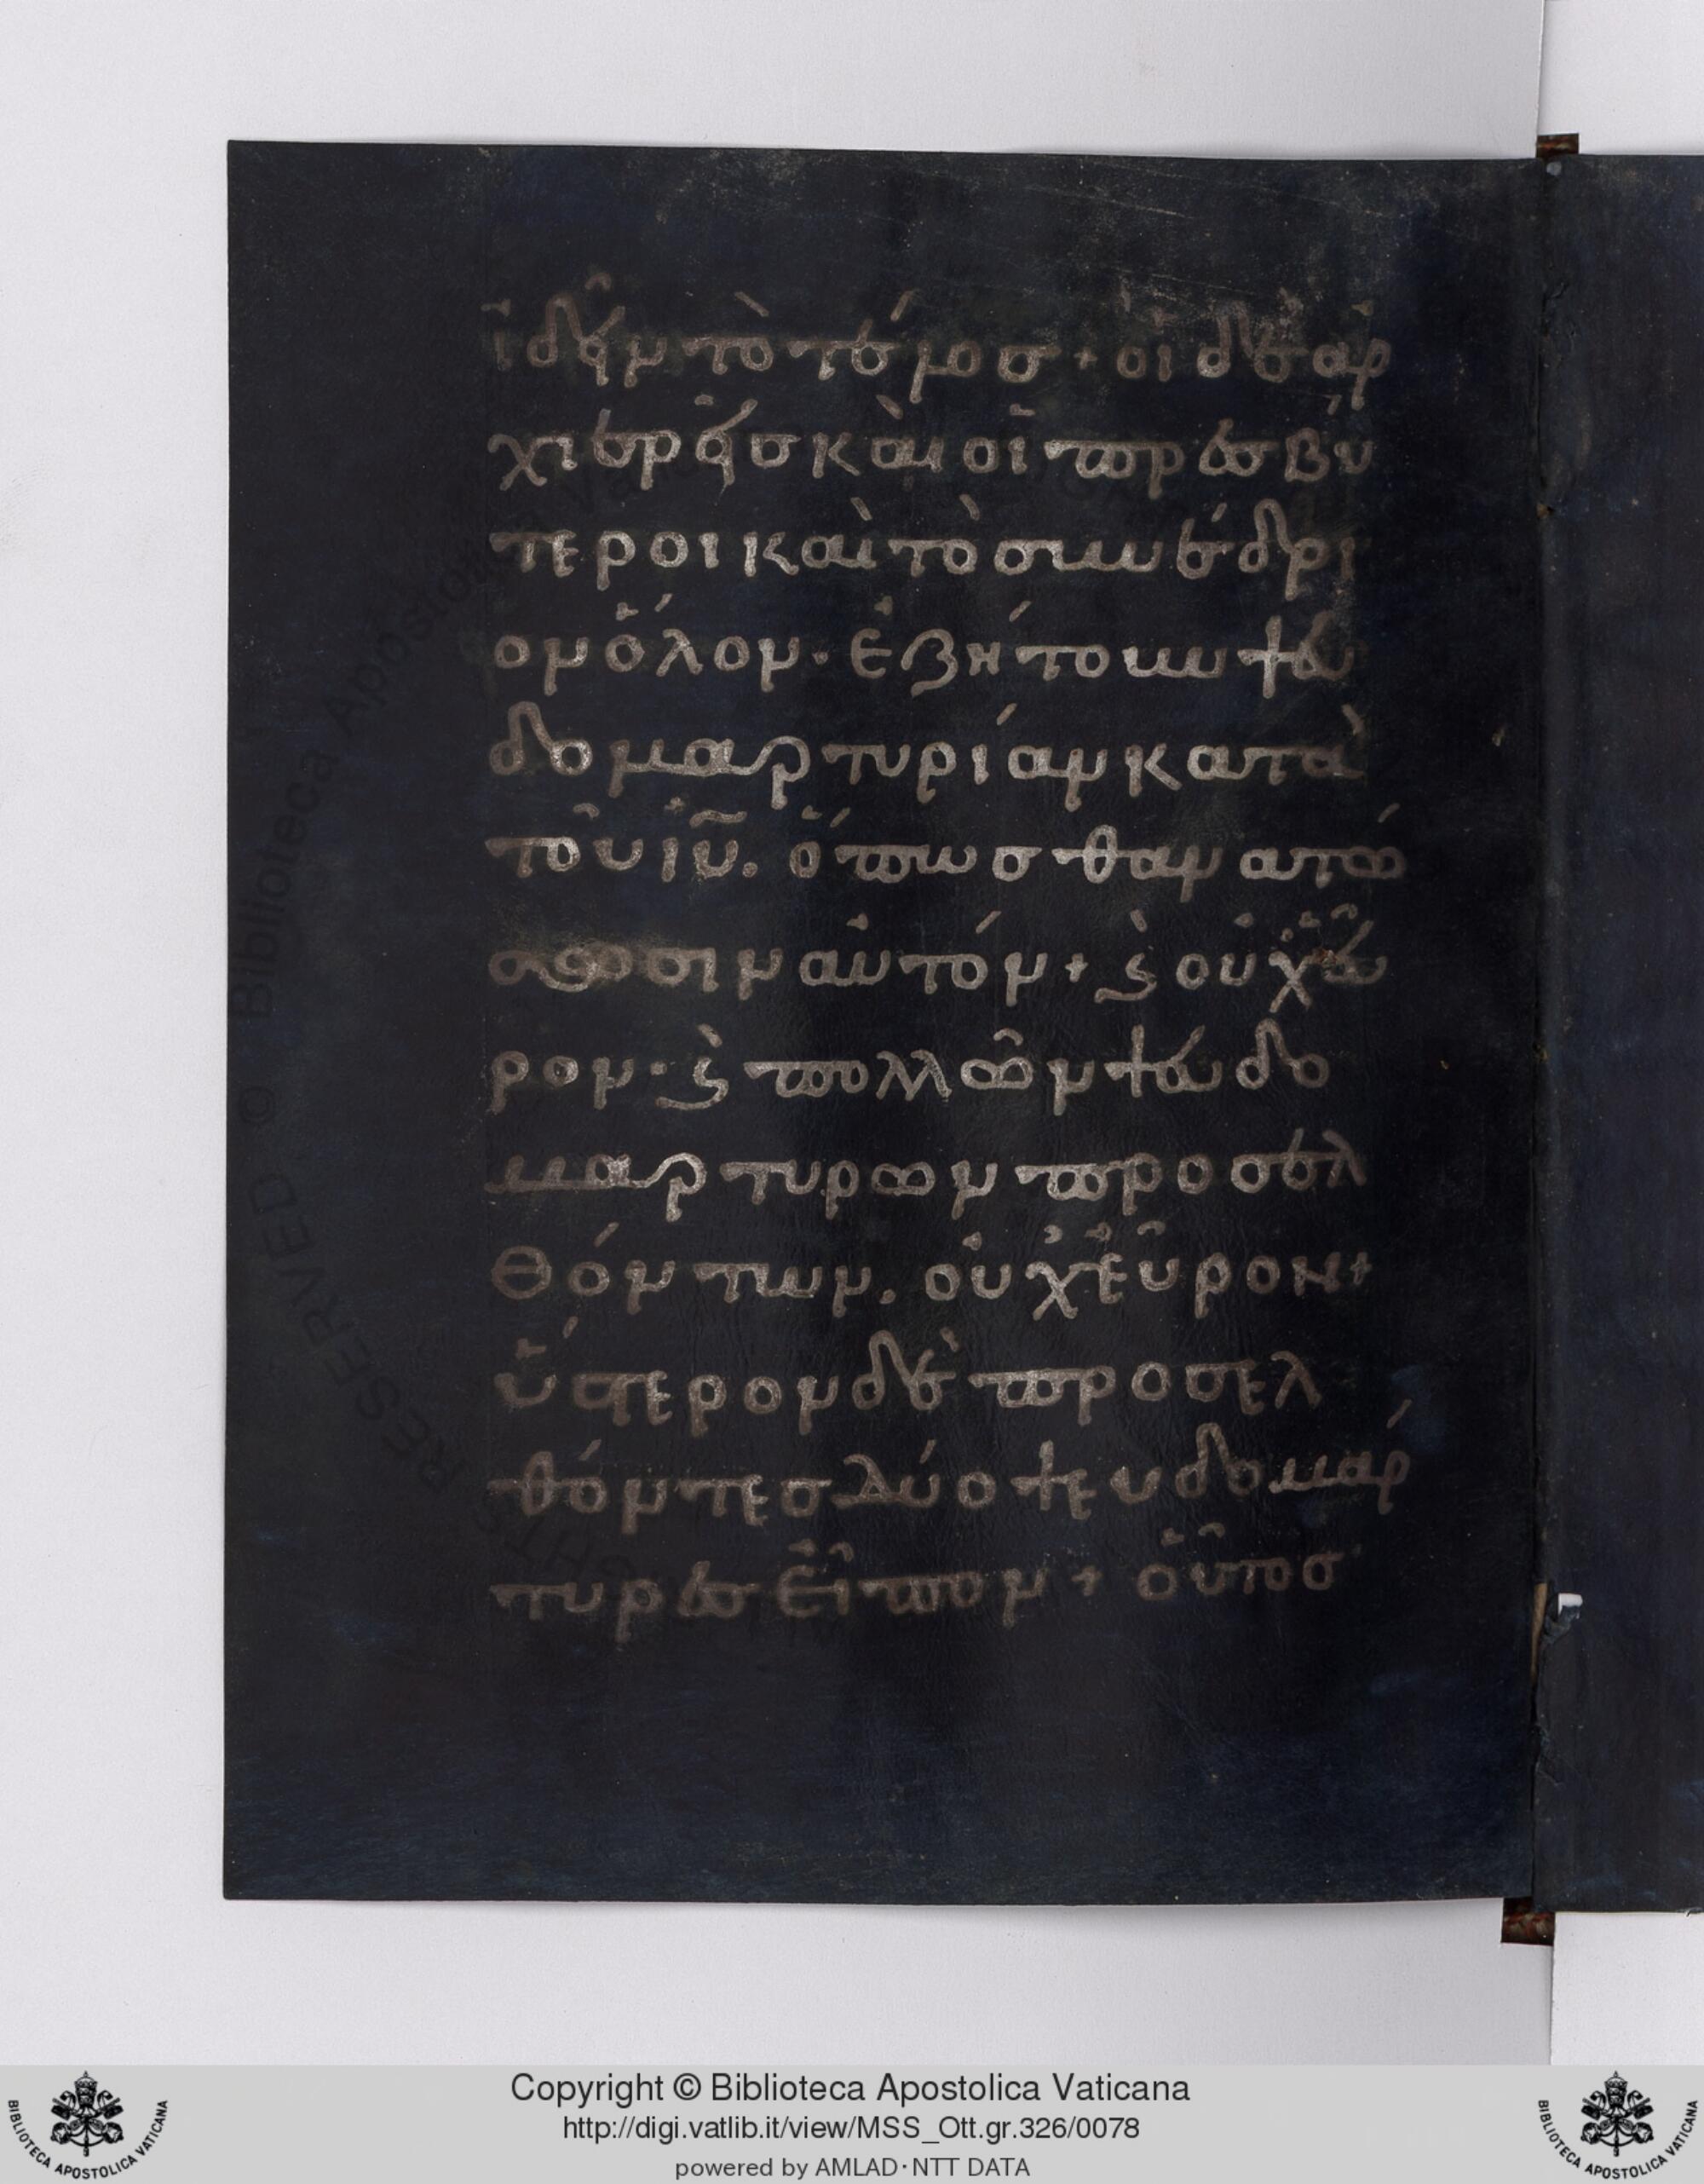 ἰδεῖν τὸ τέλος + οἱ δὲ ἀρ
χιερεῖς καὶ οἱ πρεσβύ
τεροι καὶ τὸ συνέδρι
ον ὅλον· ἐζήτουν ψευ
δομαρτυρίαν κατὰ
τοῦ ἰῦ. ὅπως θανατώ
σωσιν αὐτόν + ϛ̀ οὐχ εὗ
ρον· ϛ̀ πολλῶν ψευδο
μαρτυρων προσελ
θόντων. οὐχ εὗρον +
ὕστερον δὲ προσελ
θόντες δύο ψευδομάρ
τυρες εἶπον + οὗτος
Copyright © Biblioteca Apostolica Vaticana
http://digi.vatlib.it/view/MSS_Ott.gr.326/0078
powered by AMLAD·NTT DATA
BIBLIOTECA APOSTOLICA VATICANA
BIBLIOTECA APOSTOLICA VATICANA